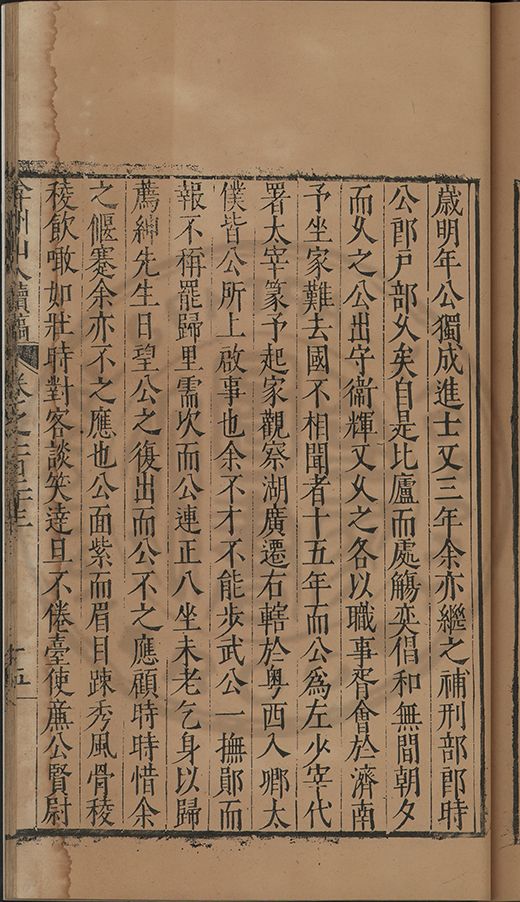 歲明年公獨成進士又三年余亦繼之補刑部郎時
公郎戶部久矣自是比廬而處觴奕倡和無間朝夕
而久之公出守衛輝又久之各以職事胥會於濟南
予坐家難去國不相聞者十五年而公為左少宰代
署太宰篆予起家觀察湖廣遷右轄於粤西入卿太
僕皆公所上啟事也余不才不能步武公一撫鄖而
報不稱罷歸里需次而公連正八坐未老乞身以歸
薦紳先生日望公之復出而公不之應顧時時惜余
之偃蹇余亦不之應也公面紫而眉目踈秀風骨稜
稜飲噉如壯時對客談笑達旦不倦臺使廉公賢尉
弇州山人續稿 卷之一百三十三 十五